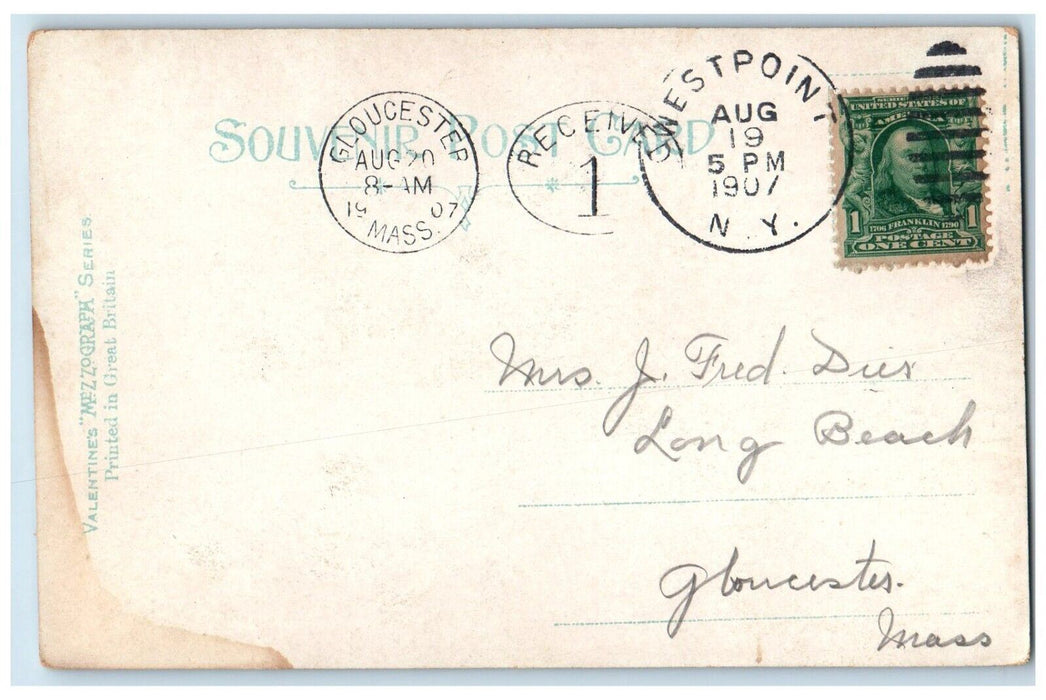 SOUVENIR POST CARD
GLOUCESTER
AUG 20
8-AM
19 07
MASS.
RECEIVED
1
WESTPOINT
AUG
19
5 PM
1907
N.Y.
SERIES 1902
UNITED STATES OF
AMERICA
1706 FRANKLIN 1790
1 POSTAGE 1
ONE CENT
VALENTINE'S "MEZZOGRAPH" SERIES
Printed in Great Britain
Mrs. J. Fred. Dier
Long Beach
Gloucester.
Mass